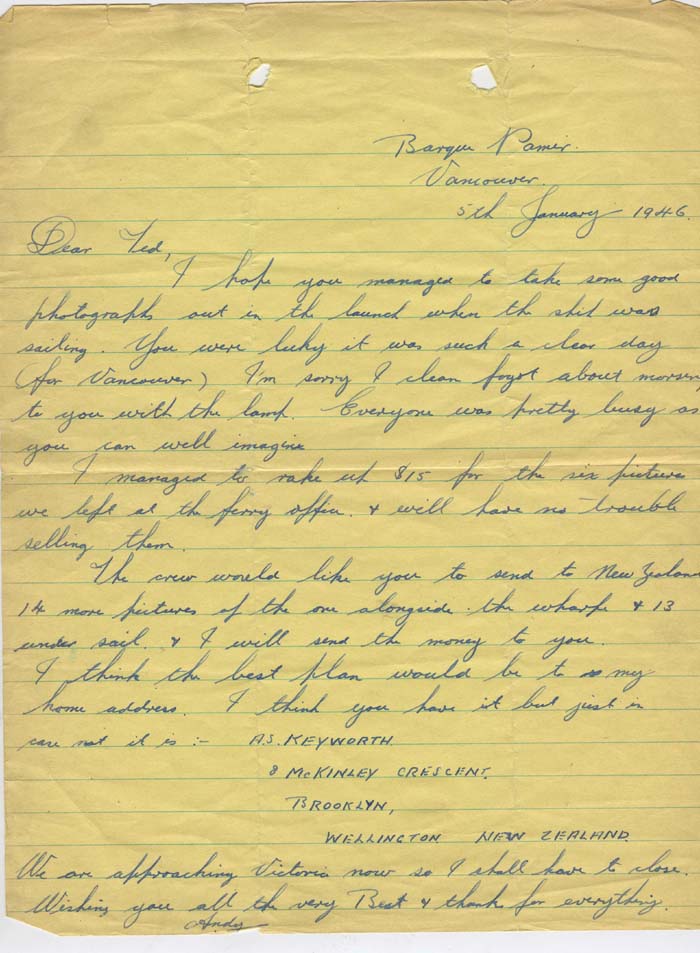 Barque Pamir.
Vancouver.
5th January 1946.
Dear Ted,
I hope you managed to take some good
photographs out in the launch when the shit was
sailing. You were lucky it was such a clear day
(for Vancouver) I'm sorry I clean forgot about morsing
to you with the lamp. Everyone was pretty busy as
you can well imagine
I managed to rake up $15 for the six pictures
we left at the ferry office. & will have no trouble
selling them.
The crew would like you to send to New Zealand
14 more pictures of the one alongside the wharfe & 13
under sail. & I will send the money to you.
I think the best plan would be to my
home address. I think you have it but just in
case not it is :- A.S. KEYWORTH.
8 McKINLEY CRESCENT.
BROOKLYN,
WELLINGTON NEW ZEALAND.
We are approaching Victoria now so I shall have to close.
Wishing you all the very Best & thanks for everything.
Andy